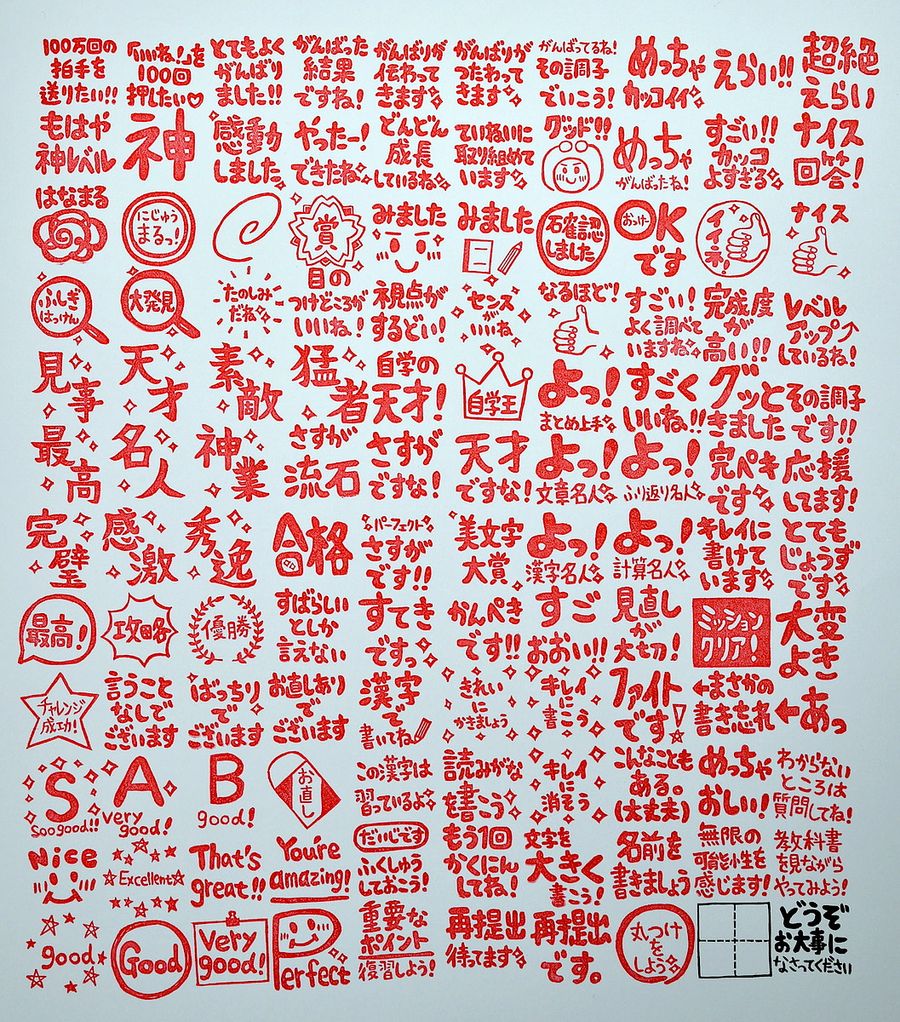 100万回の
拍手を
送りたい!!
「いいね!」を
100回
押したい♡
とてもよく
がんばり
ました!!
がんばった
結果
ですね!
がんばりが
伝わって
きます
がんばりが
つたわって
きます
がんばってるね!
その調子
でいこう!
めっちゃ
カッコイイ
えらい!!
超絶
えらい
もはや
神レベル
神
感動
しました
やったー!
できたね
どんどん
成長
しているね
ていねいに
取り組めて
います
グッド!!
めっちゃ
がんばったね!
すごい!!
カッコ
よすぎる
ナイス
回答!
はなまる
にじゅう
まるっ!
賞
みました
みました
確認
しました
おっけー
OK
です
イイネ!
ナイス
ふしぎ
はっけん
大発見
たのしみ
だね
目の
つけどころが
いいね!
視点が
するどい!
センス
が
いいね
なるほど!
すごい!
よく調べて
いますね
完成度
が
高い!!
レベル
アップ↗
しているね!
見事
天才
素敵
猛者
自学の
天才!
自学王
よっ!
まとめ上手
すごく
いいね!!
グッと
きました
その調子
です!!
最高
名人
神業
さすが
流石
さすが
ですな!
天才
ですな!
よっ!
文章名人
よっ!
ふり返り名人
完ペキ
です
応援
してます!
完璧
感激
秀逸
合格
パーフェクト
さすが
です!!
美文字
大賞
よっ!
漢字名人
よっ!
計算名人
キレイに
書けて
います
とても
じょうず
です
最高!
攻略
優勝
すばらしい
としか
言えない
すてき
ですっ
かんぺき
です!!
すご
おおい!!
見直し
が
大切!
ミッション
クリア!
大変
よき
チャレンジ
成功!
言うこと
なしで
ございます
ばっちり
で
ございます
お直しあり
で
ございます
漢字
で
書いてね
きれい
に
かきましょう
キレイ
に
書こう
ファイト
です!
←まさかの
書き忘れ
←あっ
S
Soo good!!
A
very good!
B
good!
お直し
この漢字は
習っているよ
読みがな
を書こう
キレイ
に
消そう
こんなことも
ある。
(大丈夫)
めっちゃ
おしい!
わからない
ところは
質問してね!
Nice
Excellent
That's
great!!
You're
amazing!
だいじです
ふくしゅう
しておこう!
もう1回
かくにん
してね!
文字を
大きく
書こう!
名前を
書きましょう
無限の
可能性を
感じます!
教科書
を見ながら
やってみよう!
good
Good
very
good!
Perfect
重要な
ポイント
復習しよう!
再提出
待ってます
再提出
です。
丸つけ
を
しよう
どうぞ
お大事に
なさってください